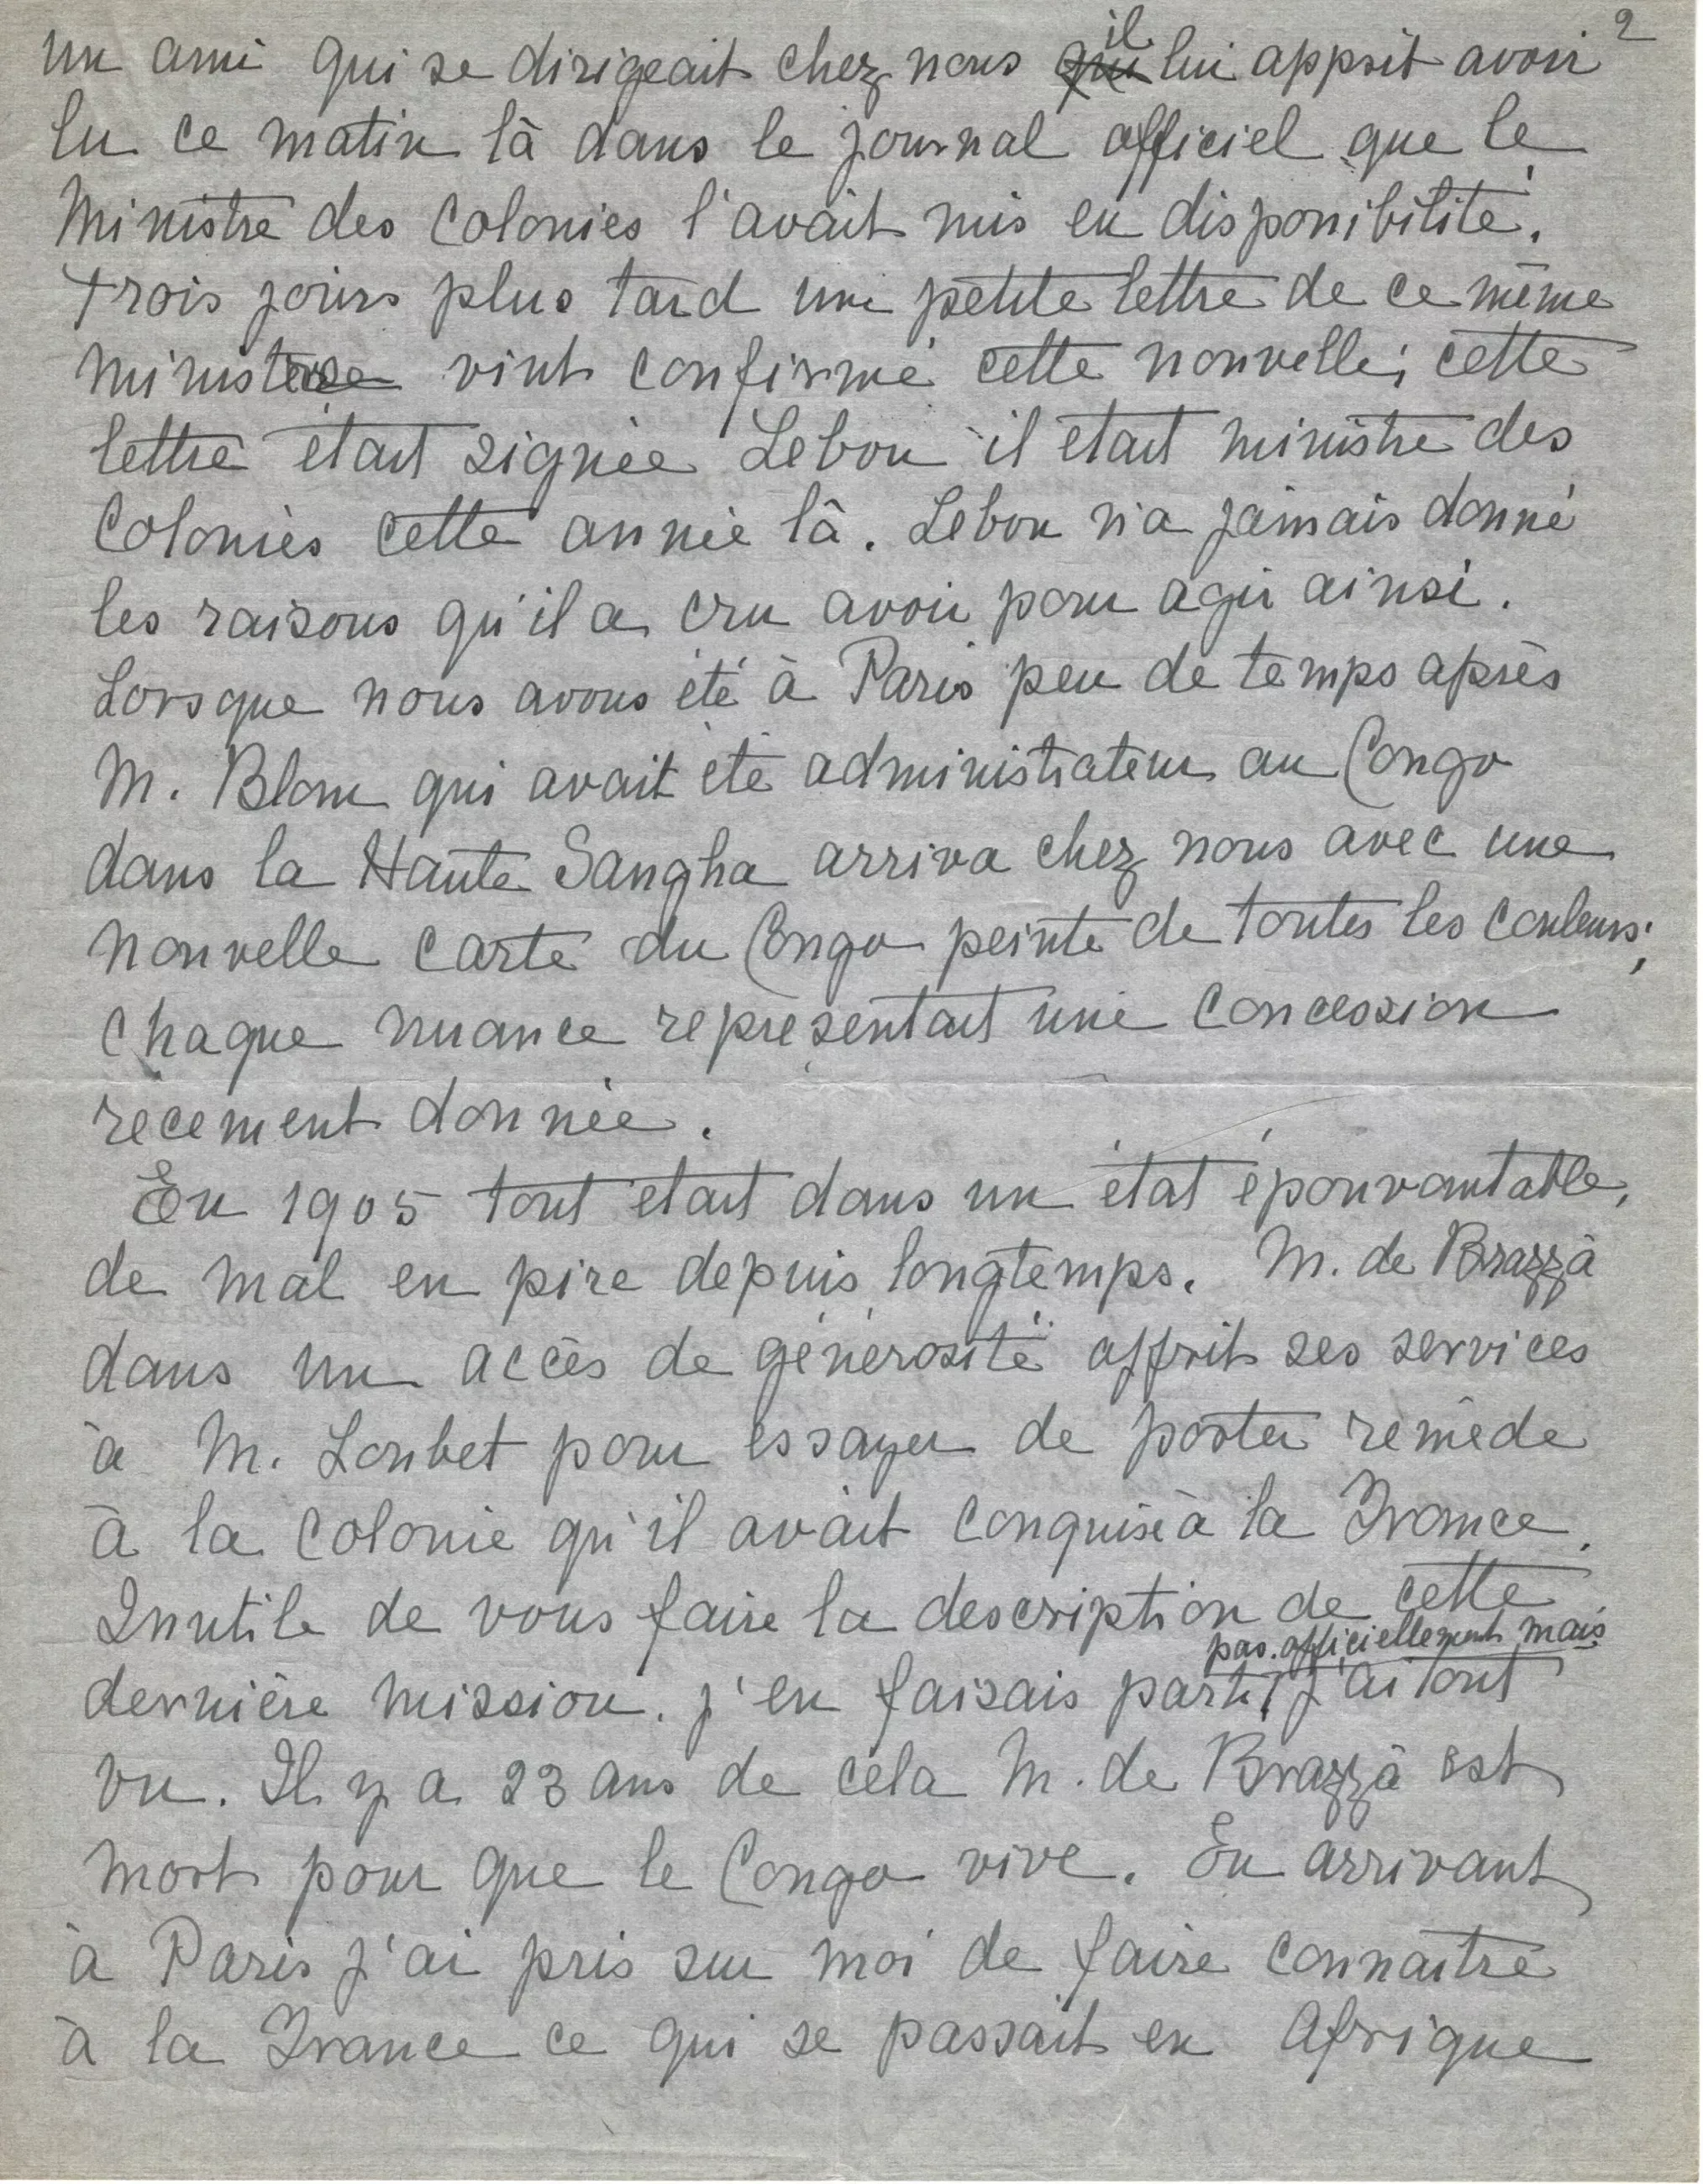 2
un ami qui se dirigeait chez nous il lui apprit avoir
lu ce matin là dans le journal officiel que le
Ministre des Colonies l'avait mis en disponibilité.
Trois jours plus tard une petite lettre de ce même
ministère vint confirmé cette nouvelle; cette
lettre était signée Lebon il était ministre des
Colonies cette année là. Lebon n'a jamais donné
les raisons qu'il a cru avoir pour agir ainsi.
Lorsque nous avons été à Paris peu de temps après
M. Blom qui avait été administrateur au Congo
dans la Haute Sangha arriva chez nous avec une
nouvelle carte du Congo peinte de toutes les couleurs;
chaque nuance représentait une concession
récement donnée.
En 1905 tout était dans un état épouvantable,
de mal en pire depuis longtemps. M. de Brazzà
dans un accès de générosité offrit ses services
à M. Loubet pour essayer de porter remède
à la colonie qu'il avait conquise à la France.
Inutile de vous faire la description de cette
pas officiellement mais
dernière mission. j'en faisais parti, j'ai tout
vu. Il y a 23 ans de cela M. de Brazzà est
mort pour que le Congo vive. En arrivant
à Paris j'ai pris sur moi de faire connaître
à la France ce qui se passait en Afrique